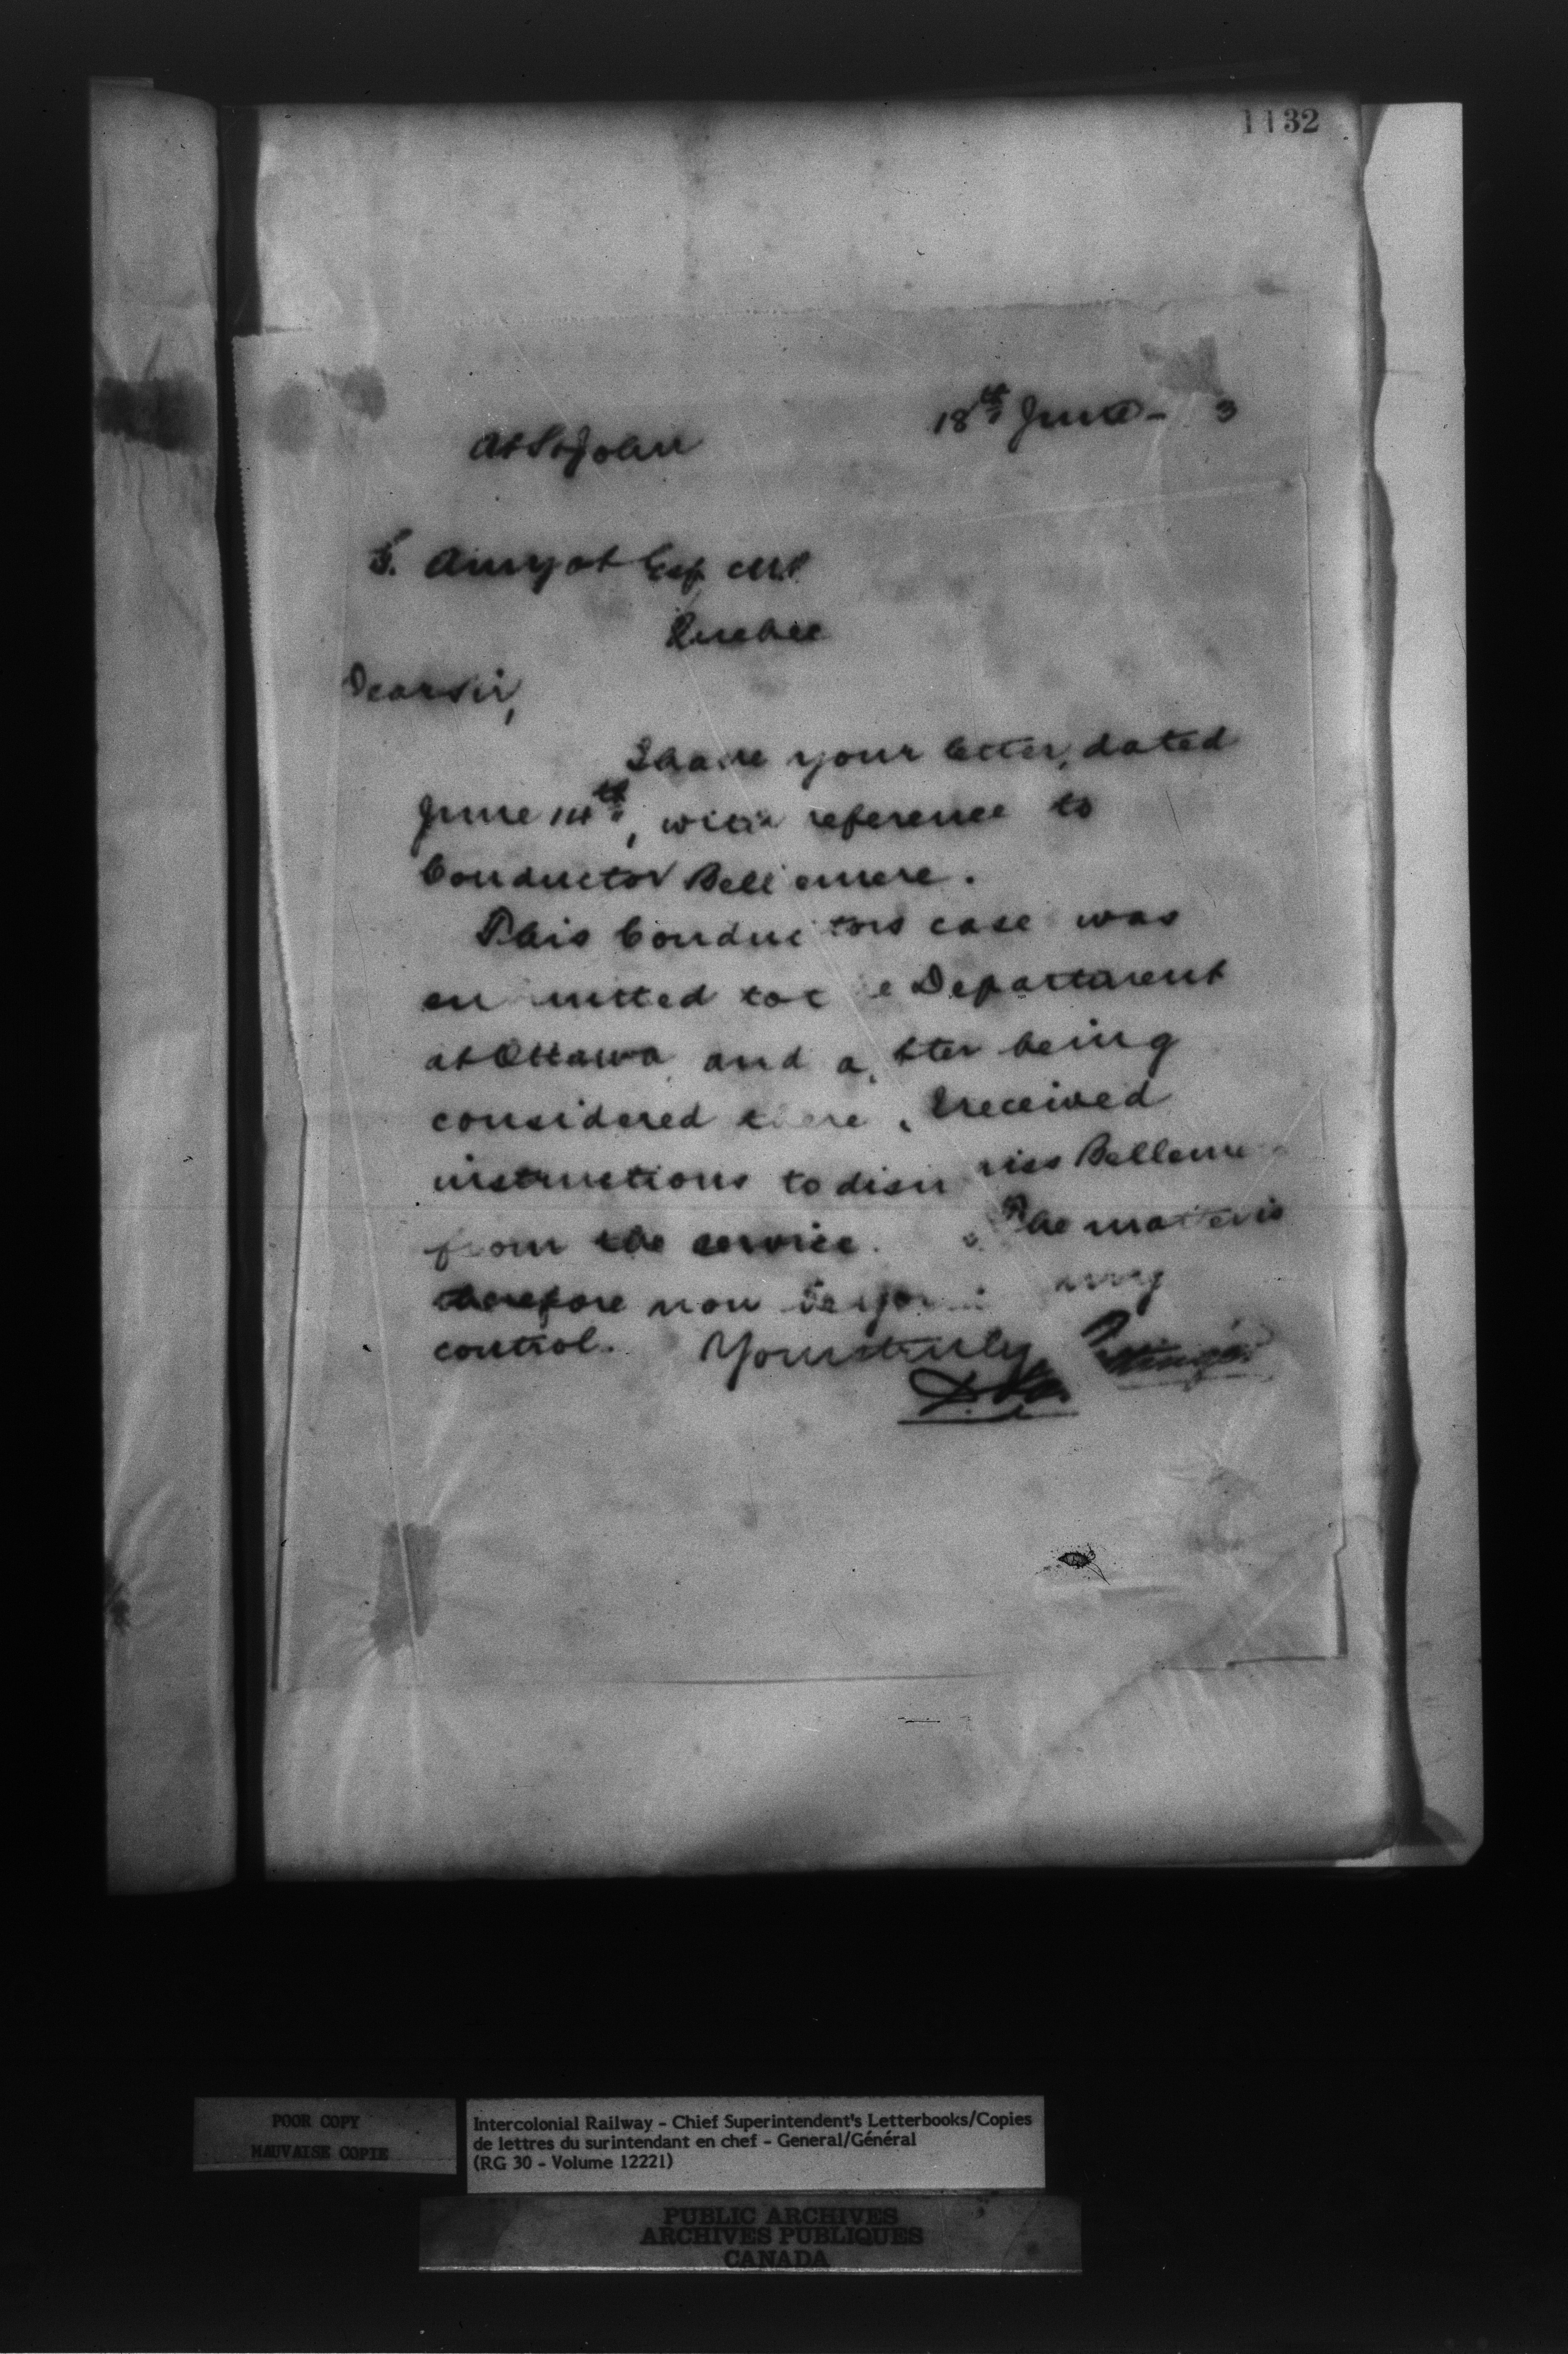 1132
18th June - 3
At St John
G. Amyot Esq MP
Quebec
Dear Sir,
I have your letter, dated
June 14th, with reference to
Conductor Bellemere.
This Conductors case was
mitted to the Department
at Ottawa and after being
considered there, I received
instructions to dismiss Belleme
from the service. The matter is
therefore now beyond my
control. Yours truly
D Pottinger
POOR COPY
MAUVAISE COPIE
Intercolonial Railway - Chief Superintendent's Letterbooks/Copies
de lettres du surintendant en chef - General/Général
(RG 30 - Volume 12221)
PUBLIC ARCHIVES
ARCHIVES PUBLIQUES
CANADA